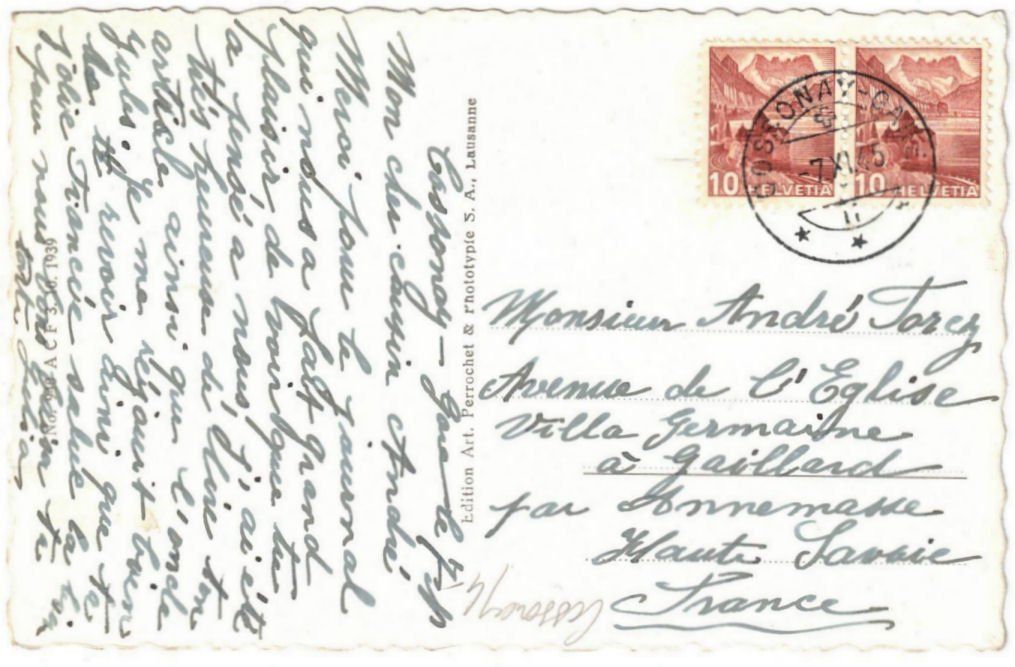 Cossonay – Gare le 7-11
Mon cher cousin André
Merci pour le journal
qui nous a fait grand
plaisir de voir que tu
a pensé a nous, j'ai été
très heureuse de lire ton
article ainsi que l'oncle
Jules, je me réjouit bien
de te revoir ainsi que ta
jolie Fiancée salue la bien
pour nous
No. 9210 A C F 3. 10. 1939
Edition Art. Perrochet & Phototypie S. A., Lausanne
COSSONAY-GARE
-7.XI.45
10 HELVETIA
10 HELVETIA
Monsieur André Torez
Avenue de l'Eglise
Villa Germaine
à Gaillard
par Annemasse
Haute Savoie
France
Cossonay